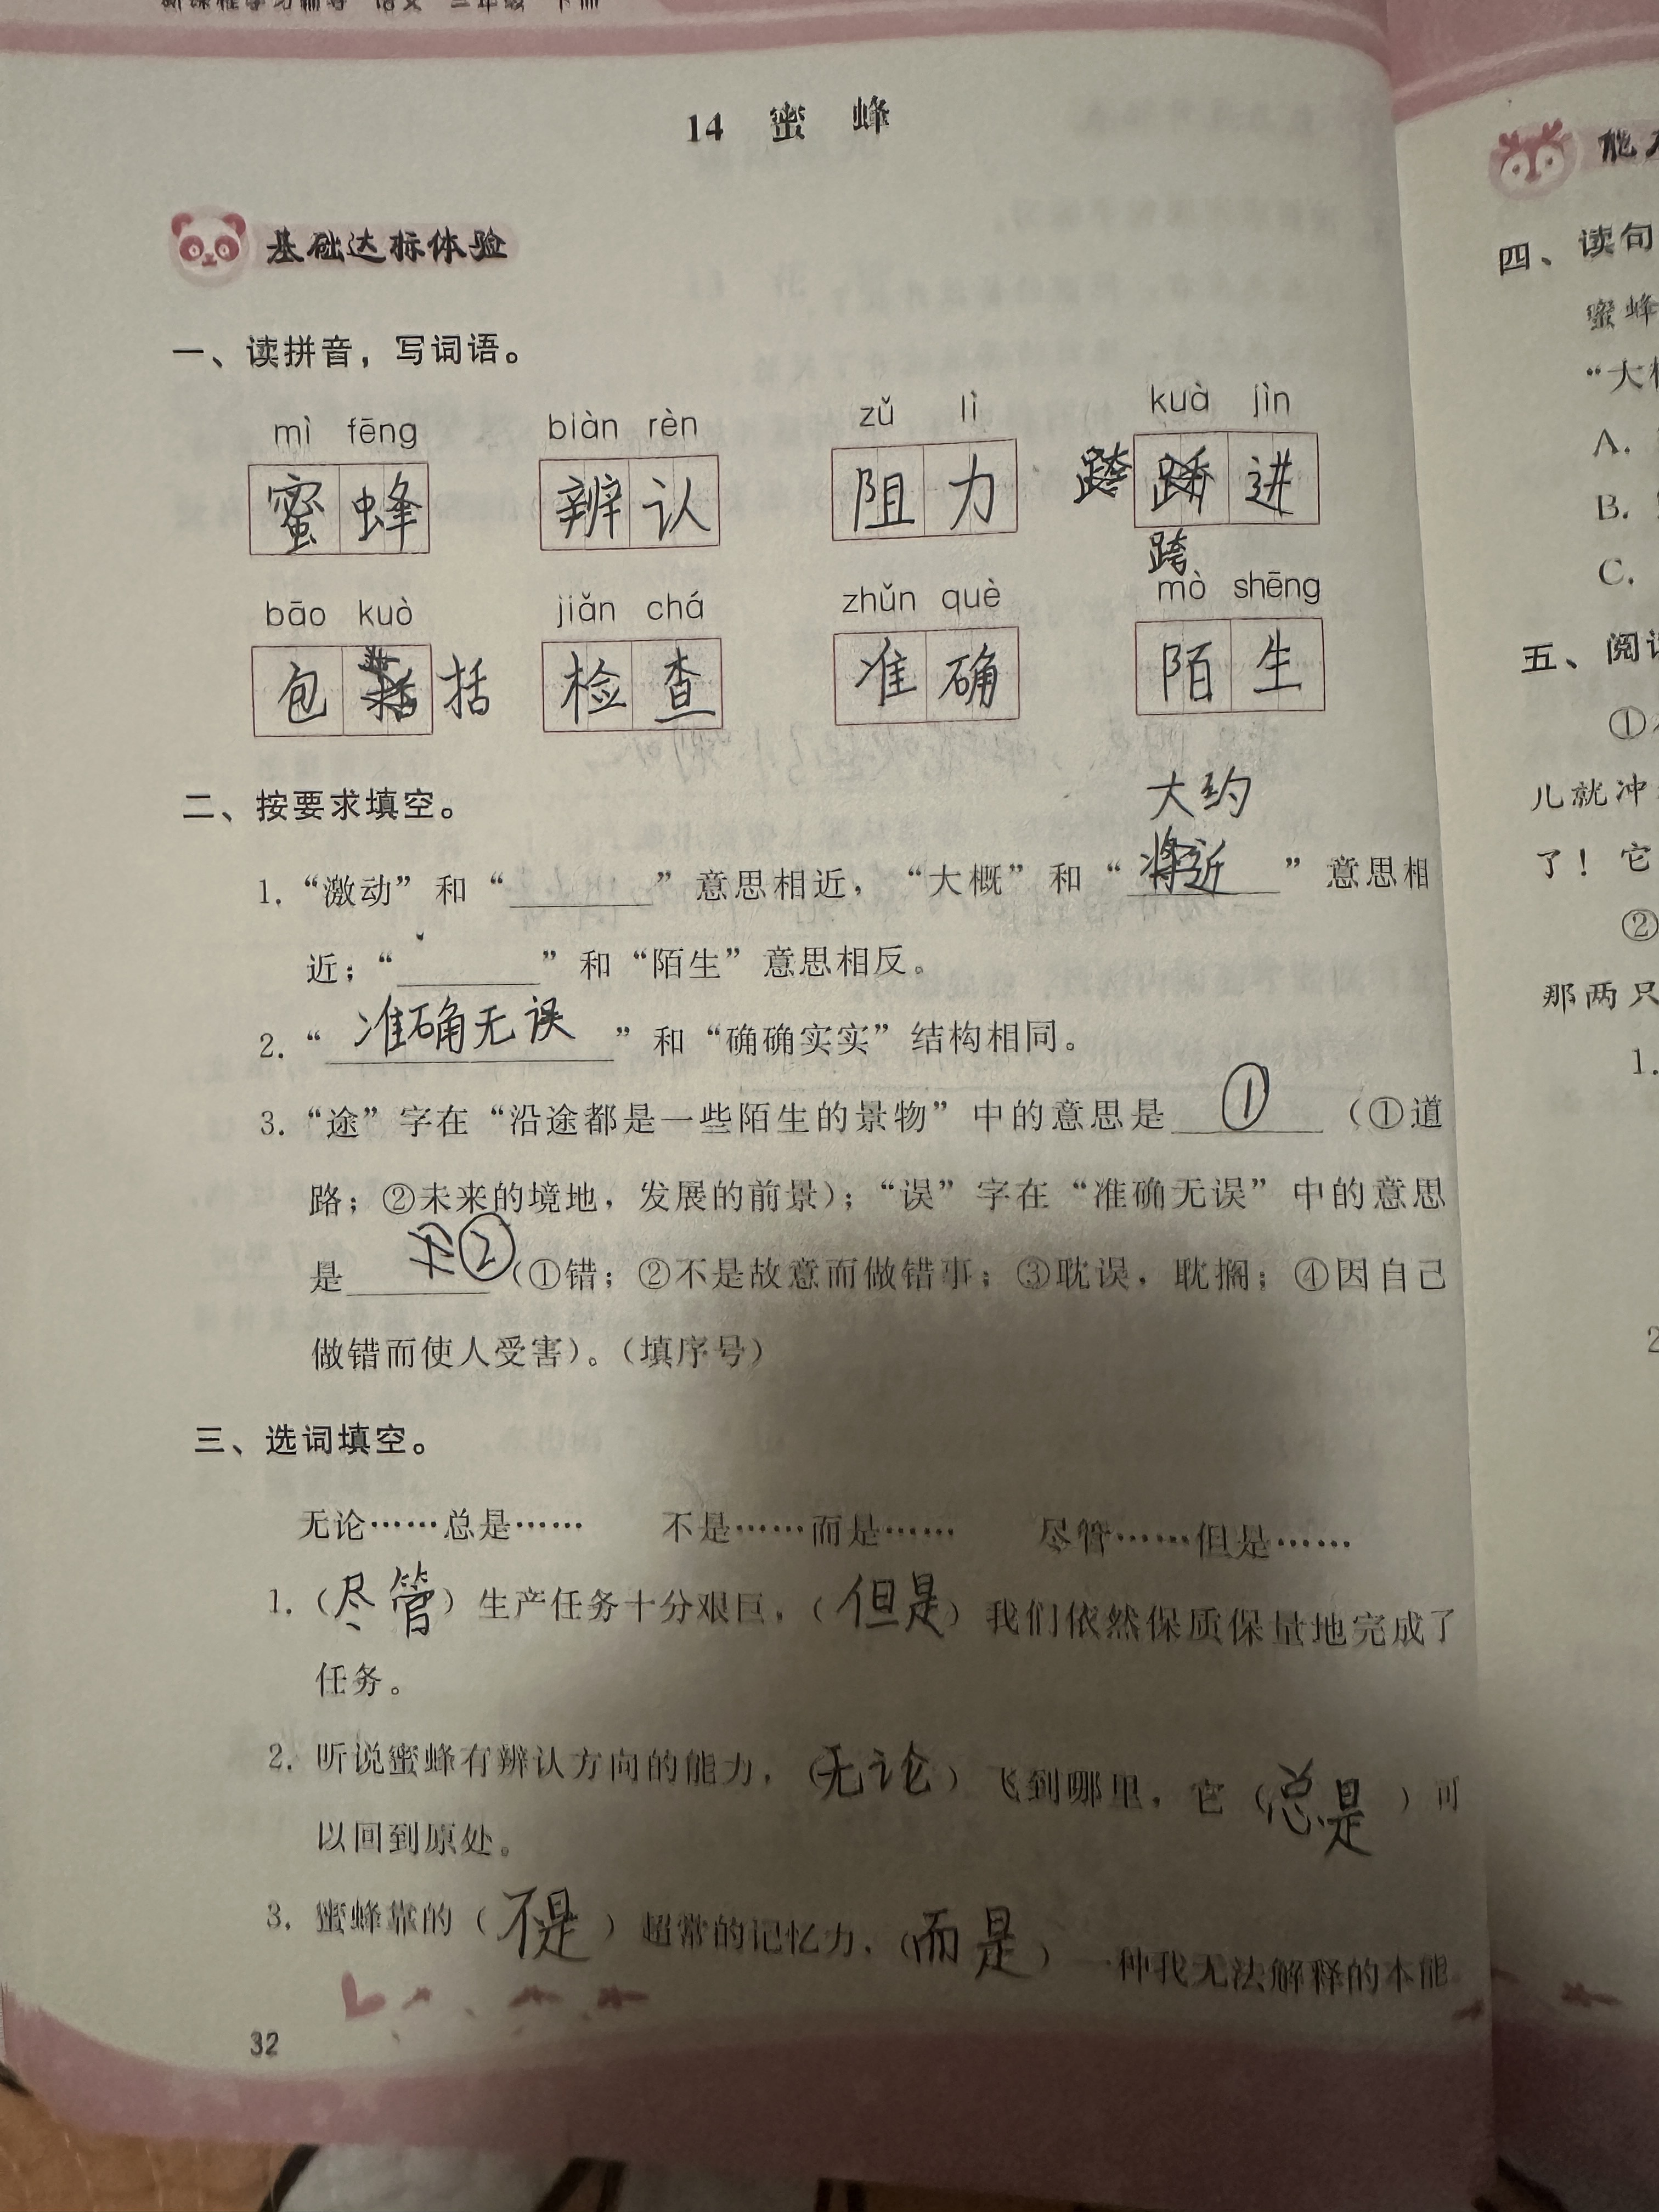 新课程学习辅导 语文 三年级 下册
14 蜜 蜂
基础达标体验
一、读拼音，写词语。
mì fēng biàn rèn zǔ lì kuà jìn
蜜蜂 辨认 阻力 跨 进
跨
bāo kuò jiǎn chá zhǔn què mò shēng
包 括 检查 准确 陌生
二、按要求填空。
大约
1. “激动”和“______”意思相近，“大概”和“将近”意思相
近；“______”和“陌生”意思相反。
2. “准确无误”和“确确实实”结构相同。
3. “途”字在“沿途都是一些陌生的景物”中的意思是 ① （①道
路；②未来的境地，发展的前景）；“误”字在“准确无误”中的意思
是 ② （①错；②不是故意而做错事；③耽误，耽搁；④因自己
做错而使人受害）。（填序号）
三、选词填空。
无论……总是…… 不是……而是…… 尽管……但是……
1.（尽管）生产任务十分艰巨，（但是）我们依然保质保量地完成了
任务。
2. 听说蜜蜂有辨认方向的能力，（无论）飞到哪里，它（总是）可
以回到原处。
3. 蜜蜂靠的（不是）超常的记忆力，（而是）一种我无法解释的本能
32
四、读句
蜜蜂
“大
A.
B.
C.
五、阅
①
儿就冲
了！它
②
那两只
1.
2